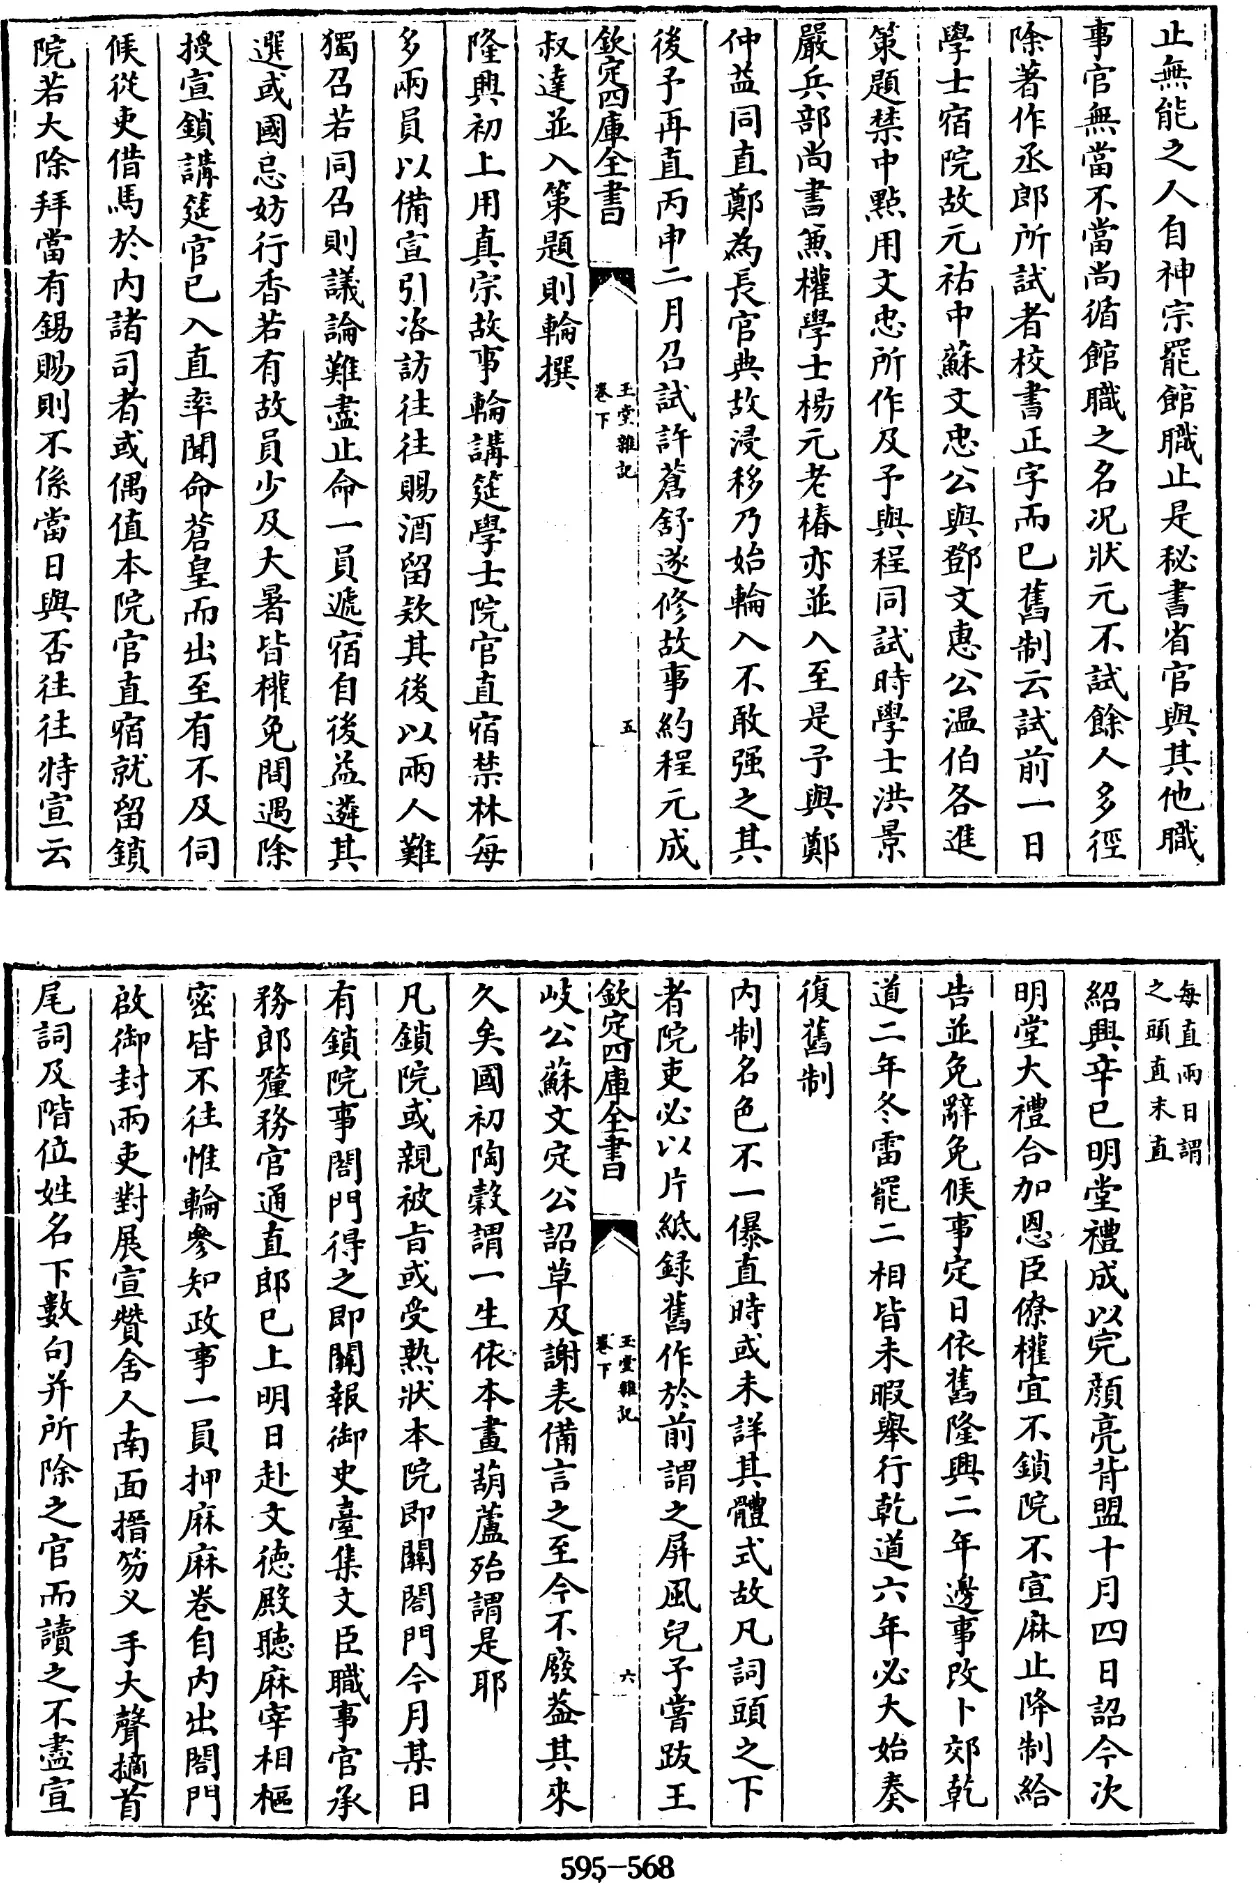 止無能之人自神宗罷館職止是秘書省官與其他職
事官無當不當尚循館職之名况狀元不試餘人多徑
除著作丞郎所試者校書正字而已舊制云試前一日
學士宿院故元祐中蘇文忠公與鄧文惠公温伯各進
策題禁中點用文忠所作及予與程同試時學士洪景
嚴兵部尚書兼權學士楊元老椿亦並入至是予與鄭
仲益同直鄭為長官典故浸移乃始輪入不敢强之其
後予再直丙申二月召試許蒼舒遂修故事約程元成
欽定四庫全書
玉堂雜記
卷下
五
叔達並入策題則輪撰
隆興初上用真宗故事輪講筵學士院官直宿禁林每
多兩員以備宣引咨訪往往賜酒留欵其後以兩人難
獨召若同召則議論難盡止命一員遞宿自後益遴其
選或國忌妨行香若有故員少及大暑皆權免間遇除
授宣鎖講筵官已入直率聞命蒼皇而出至有不及伺
候從吏借馬於内諸司者或偶值本院官直宿就留鎖
院若大除拜當有錫賜則不係當日與否往往特宣云
每直兩日謂
之頭直末直
紹興辛巳明堂禮成以完顔亮背盟十月四日詔今次
明堂大禮合加恩臣僚權宜不鎖院不宣麻止降制給
告並免辭免候事定日依舊隆興二年邊事改卜郊乾
道二年冬雷罷二相皆未暇舉行乾道六年必大始奏
復舊制
内制名色不一儤直時或未詳其體式故凡詞頭之下
者院吏必以片紙録舊作於前謂之屏風兒予嘗跋王
欽定四庫全書
玉堂雜記
卷下
六
岐公蘇文定公詔草及謝表備言之至今不廢益其來
久矣國初陶穀謂一生依本畫葫蘆殆謂是耶
凡鎖院或親被旨或受熟狀本院即關閤門今月某日
有鎖院事閤門得之即關報御史臺集文臣職事官承
務郎釐務官通直郎已上明日赴文德殿聽麻宰相樞
密皆不往惟輪參知政事一員押麻麻卷自内出閤門
啟御封兩吏對展宣贊舍人南面搢笏叉手大聲摘首
尾詞及階位姓名下數句并所除之官而讀之不盡宣
595-568